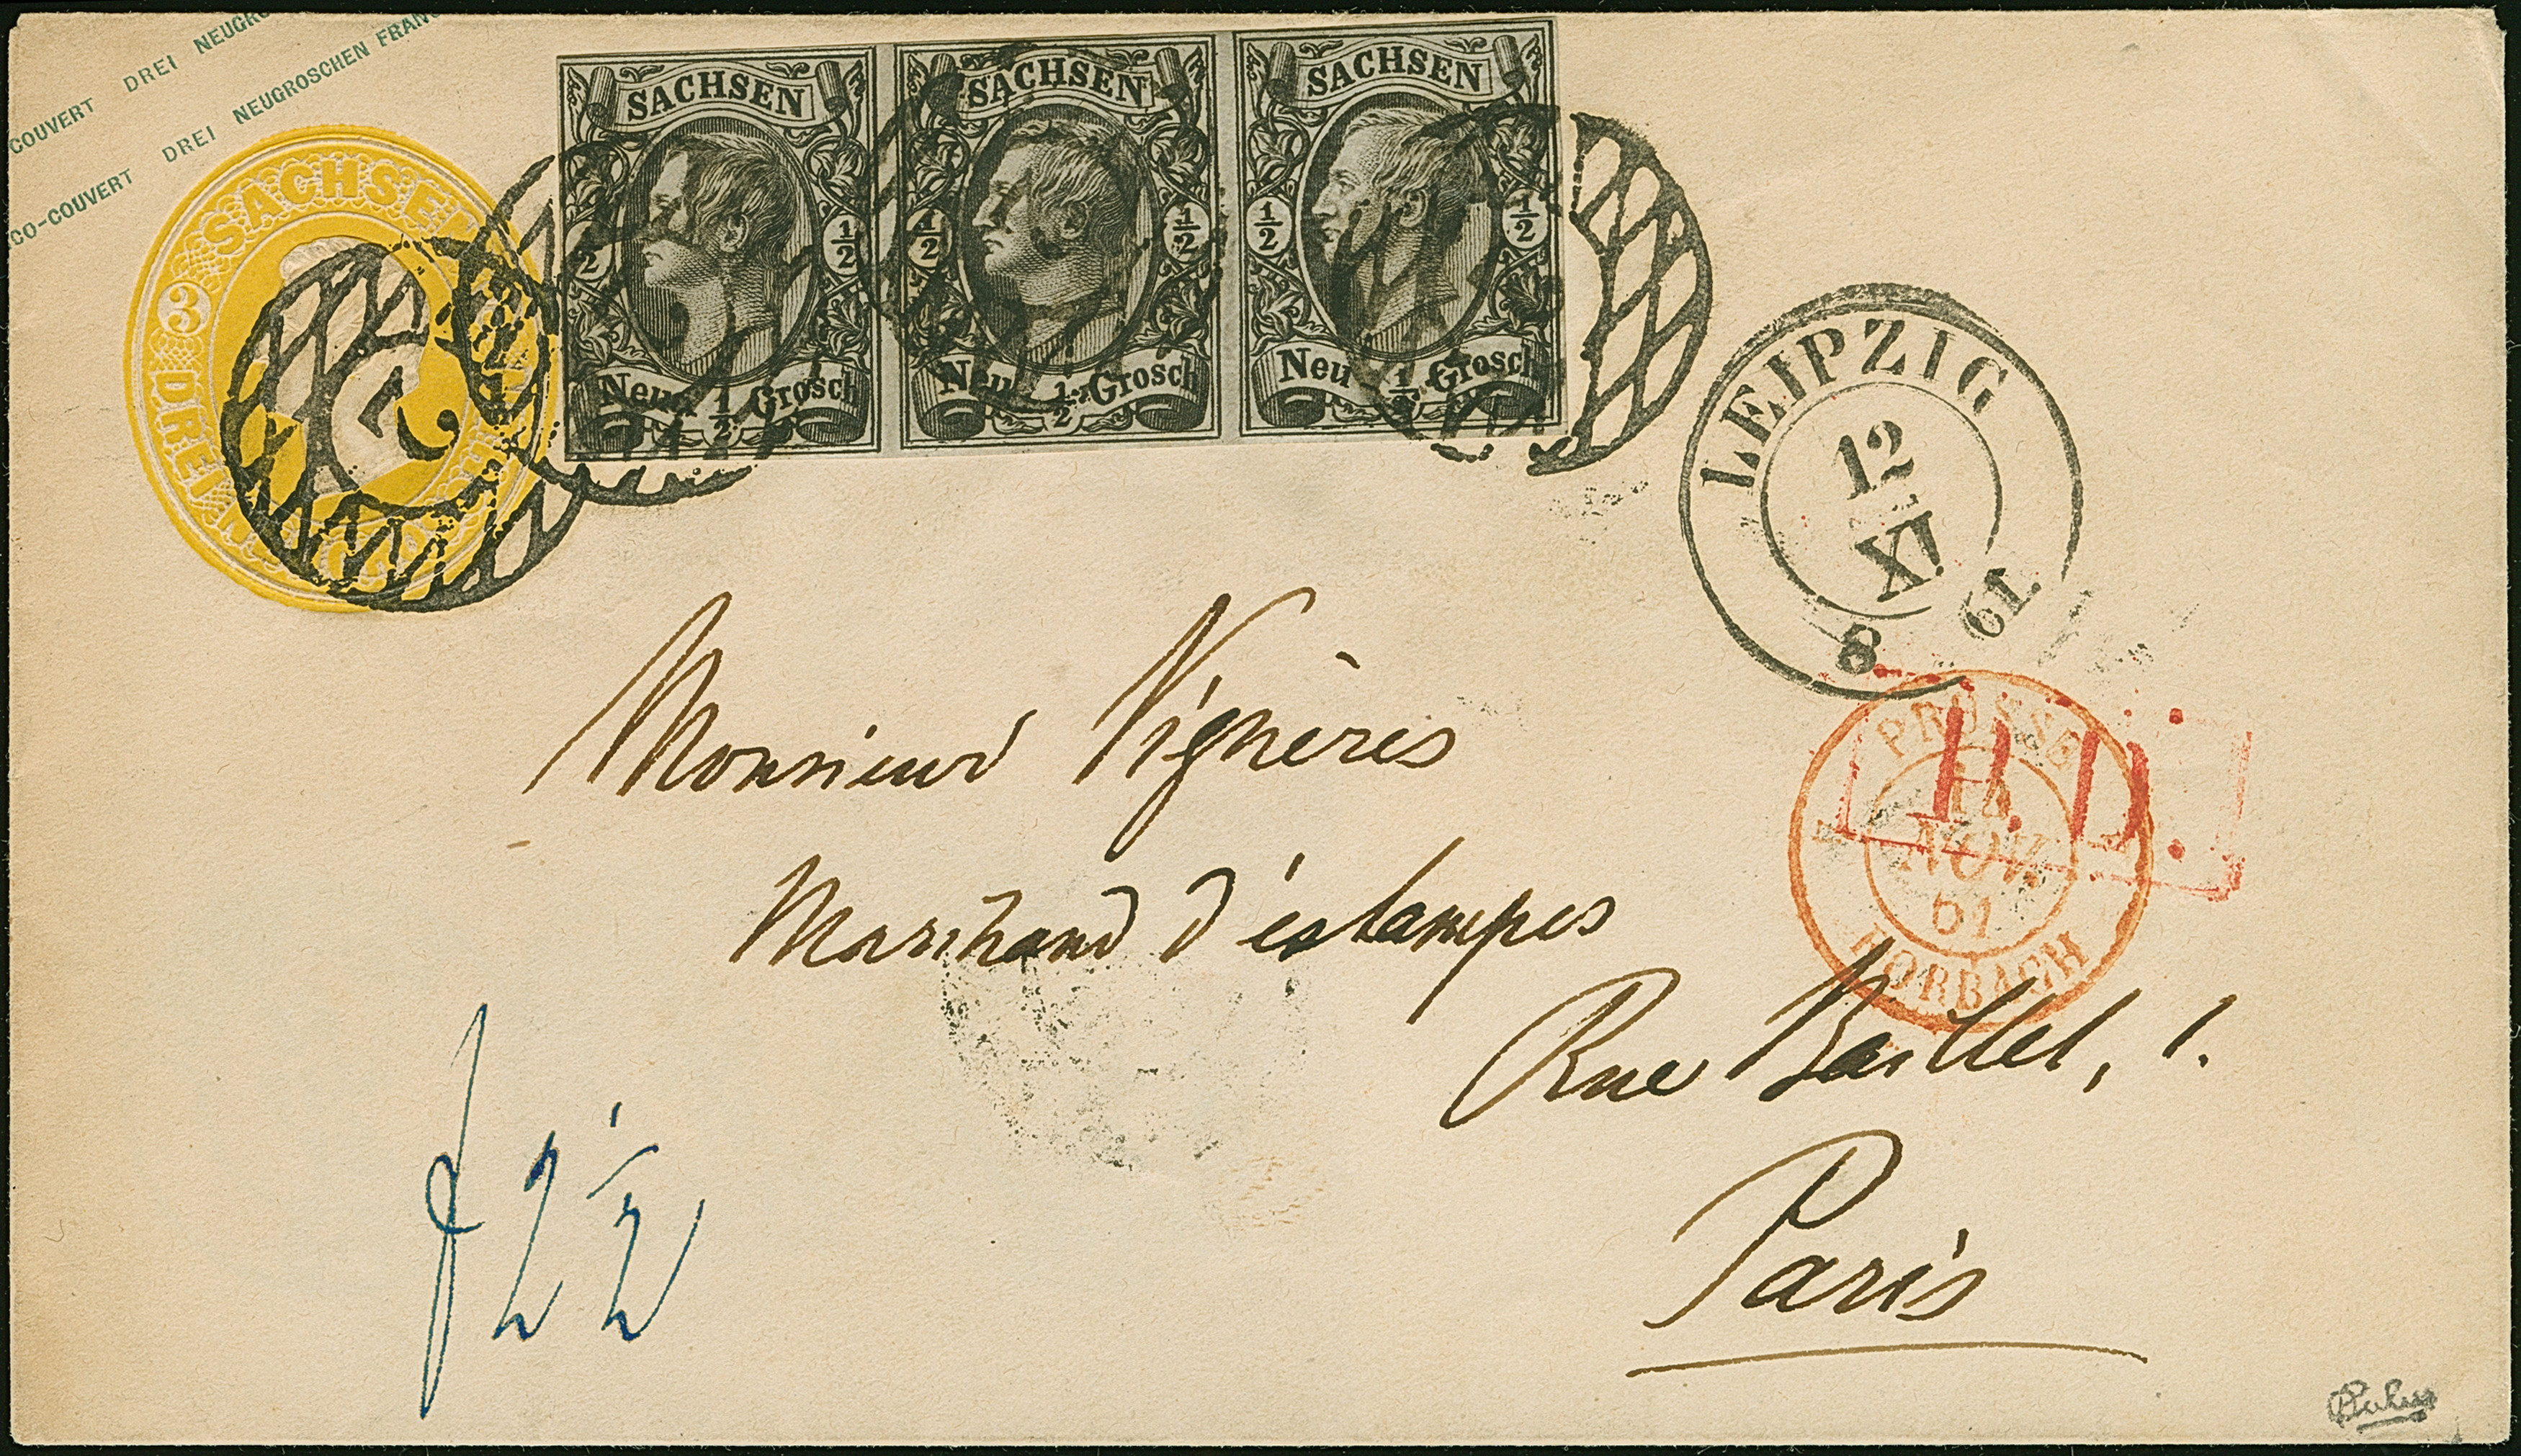 COUVERT DREI NEUGR
CO-COUVERT DREI NEUGROSCHEN FRAN
SACHSEN
3
DREI
2
SACHSEN
2 1/2
Neu 1/2 Grosch
SACHSEN
1/2 1/2
Neu 1/2 Grosch
SACHSEN
1/2 1/2
Neu 1/2 Grosch
LEIPZIG
12
XI
8 61
PRUSSE
NOV.
61
FORBACH
P.D.
Monsieur Vignères
Marchand d'éstampes
Rue Baillet, 1.
Paris
f 2 1/2